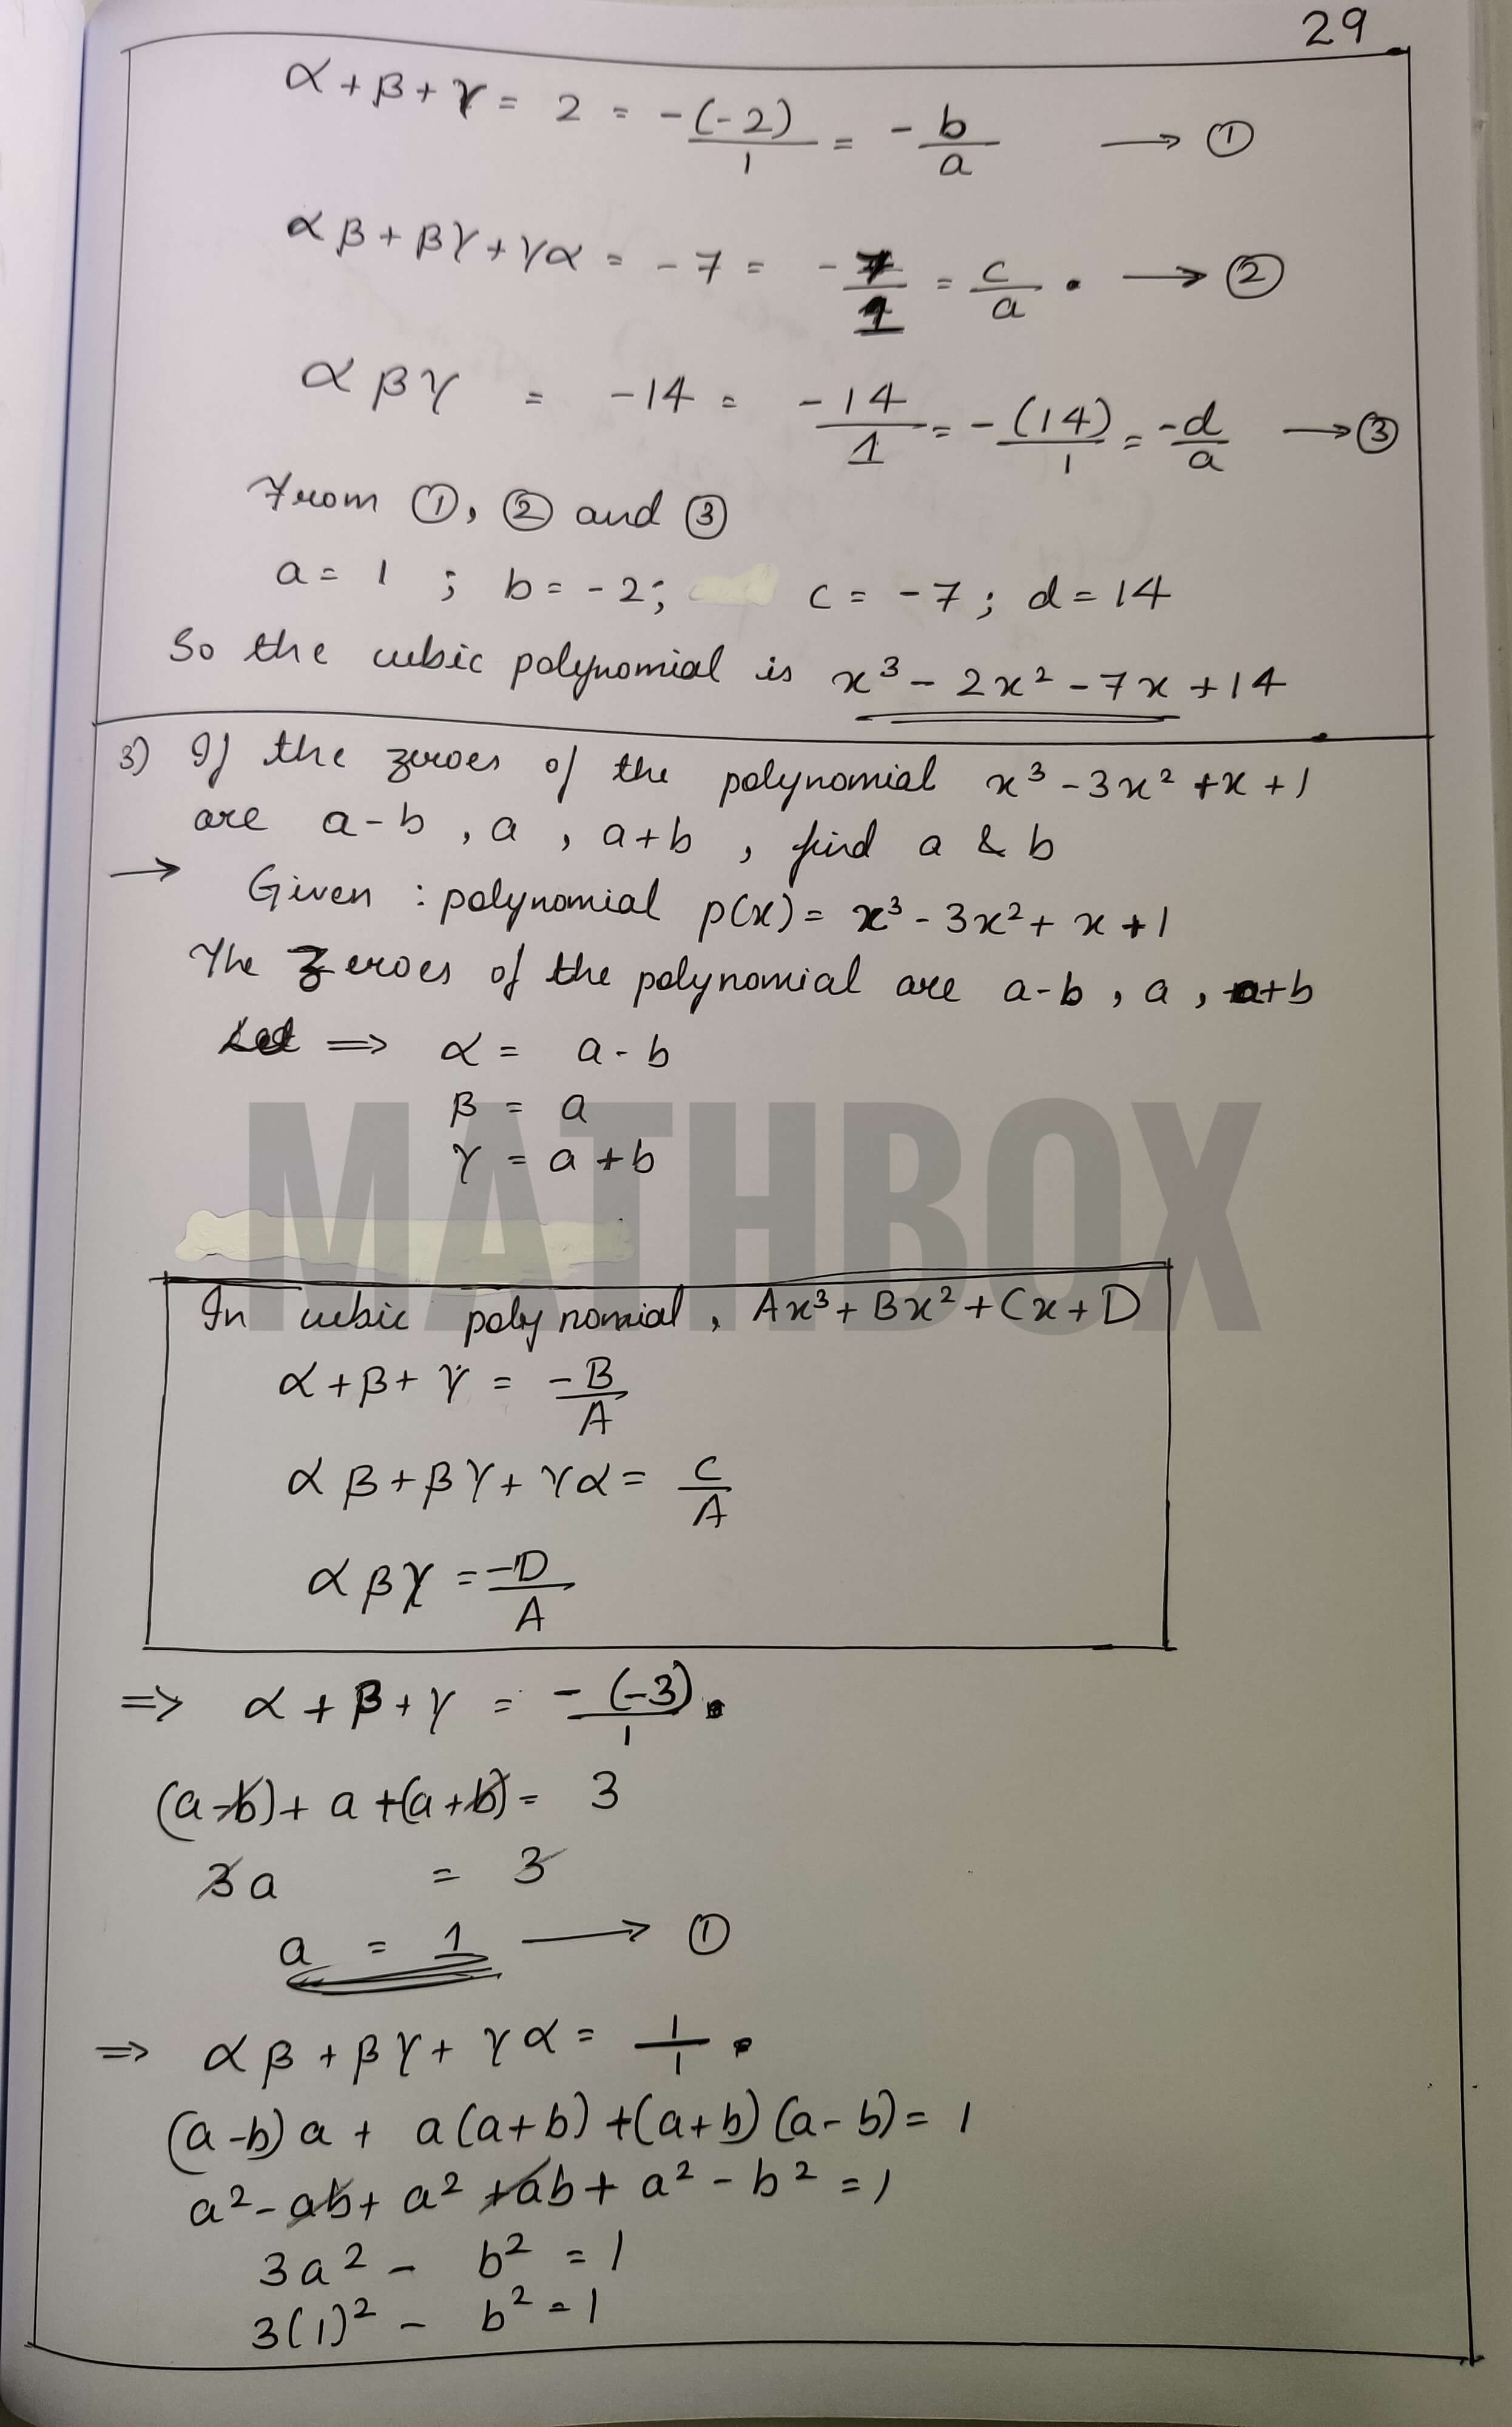 29
α + β + γ = 2 = -(-2)/1 = -b/a → ①
αβ + βγ + γα = -7 = -7/1 = c/a . → ②
αβγ = -14 = -14/1 = -(14)/1 = -d/a → ③
From ①, ② and ③
a = 1 ; b = -2; c = -7; d = 14
So the cubic polynomial is x³ - 2x² - 7x + 14
3) If the zeroes of the polynomial x³ - 3x² + x + 1
are a-b, a, a+b, find a & b
→ Given : polynomial p(x) = x³ - 3x² + x + 1
The zeroes of the polynomial are a-b, a, a+b
Let ⇒ α = a - b
β = a
γ = a + b
MATHBOX
In cubic polynomial, Ax³ + Bx² + Cx + D
α + β + γ = -B/A
αβ + βγ + γα = C/A
αβγ = -D/A
⇒ α + β + γ = -(-3)/1 .
(a-b) + a + (a+b) = 3
3a = 3
a = 1 → ①
⇒ αβ + βγ + γα = 1/1 .
(a-b)a + a(a+b) + (a+b)(a-b) = 1
a² - ab + a² + ab + a² - b² = 1
3a² - b² = 1
3(1)² - b² = 1